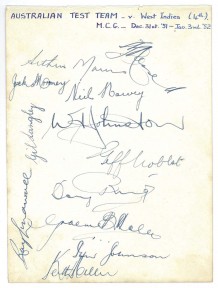 AUSTRALIAN TEST TEAM - v. West Indies (4th)
M.C.G. - Dec 31st '51 - Jan 3rd '52
Arthur Morris
Jack Moroney
Neil Harvey
Gil Langley
W A Johnston
Geff Noblet
Doug Ring
Graeme B Hole
Ray Lindwall
Ian Johnson
Keith Miller